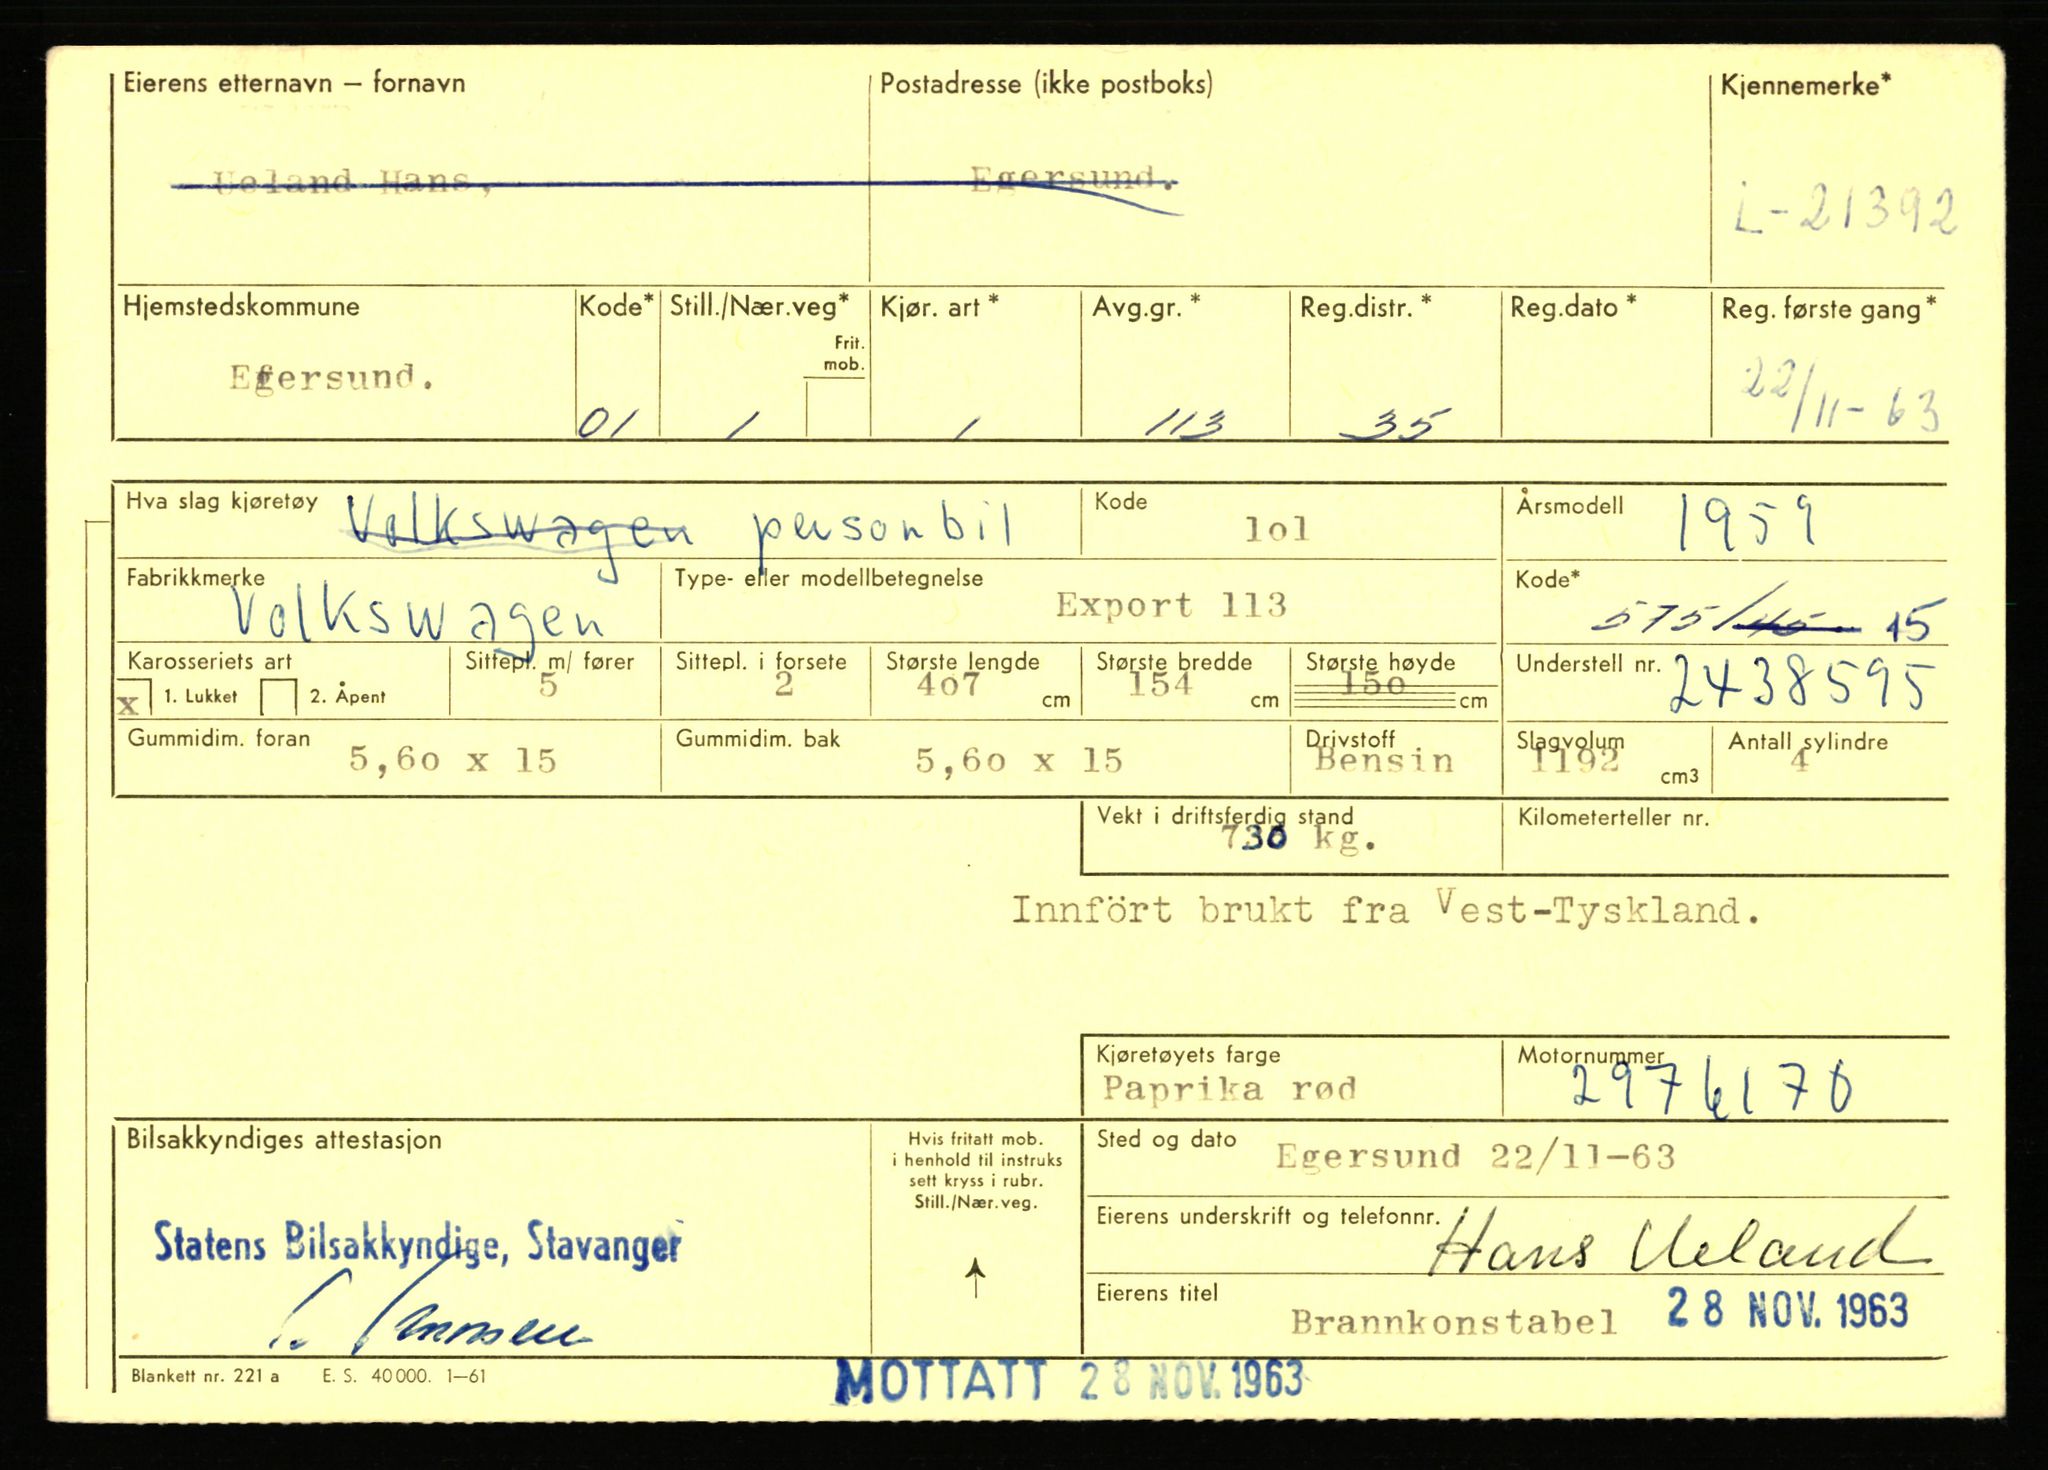 Eierens etternavn – fornavn Postadresse (ikke postboks) Kjennemerke*
Ueland Hans, Egersund.
L-21392
Hjemstedskommune Kode* Still./Nær.veg* Kjør. art* Avg.gr.* Reg.distr.* Reg.dato* Reg. første gang*
Frit.
mob.
Egersund. 22/11-63
01 1 1 113 35
Hva slag kjøretøy Volkswagen personbil Kode 1o1 Årsmodell 1959
Fabrikkmerke Volkswagen Type- eller modellbetegnelse Export 113 Kode* 575/45 15
Karosseriets art Sittepl. m/ fører Sittepl. i forsete Største lengde Største bredde Største høyde Understell nr. 2438595
x 1. Lukket 2. Åpent 5 2 4o7 cm 154 cm 15o cm
Gummidim. foran Gummidim. bak Drivstoff Slagvolum Antall sylindre
5,6o x 15 5,6o x 15 Bensin 1192 cm3 4
Vekt i driftsferdig stand Kilometerteller nr.
730 kg.
Innfört brukt fra Vest-Tyskland.
Kjøretøyets farge Motornummer
Paprika rød 2976170
Bilsakkyndiges attestasjon
Hvis fritatt mob.
i henhold til instruks
sett kryss i rubr.
Still./Nær.veg.
Sted og dato Egersund 22/11-63
Statens Bilsakkyndige, Stavanger
Eierens underskrift og telefonnr. Hans Ueland
Eierens titel Brannkonstabel 28 NOV. 1963
Blankett nr. 221 a E. S. 40 000. 1–61
MOTTATT 28 NOV. 1963